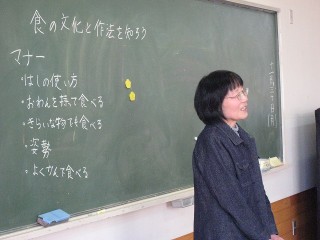 食の文化と作法を知ろう
マナー
・はしの使い方
・おわんを持って食べる
・きらいな物でも食べる
・姿勢
・よくかんで食べる